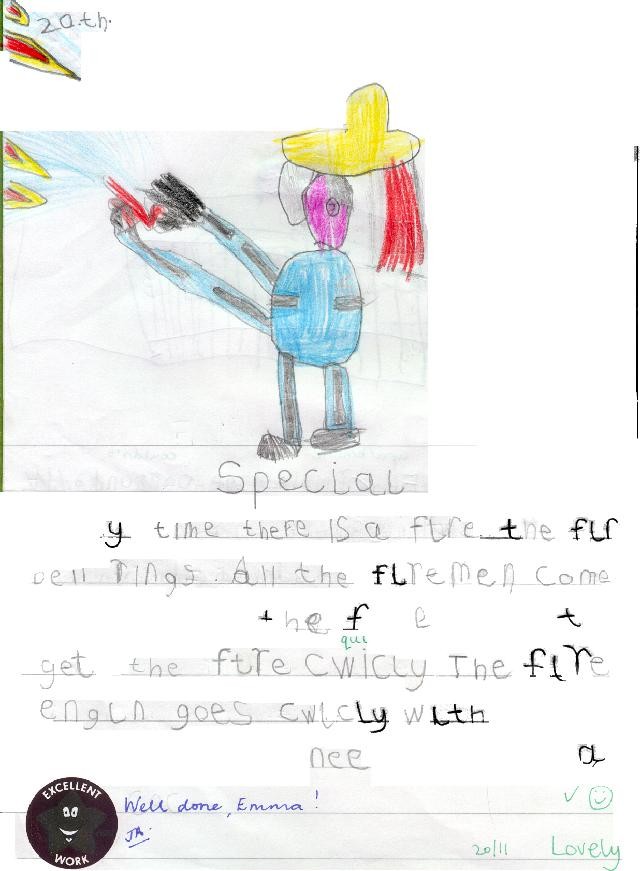 20.th.
Special
y time there is a fire the fir
bell rings. All the firemen come
the f e t
qui
get the fire cwicly The fire
engin goes cwicly with
nee a
EXCELLENT WORK
Well done, Emma!
20/11 Lovely